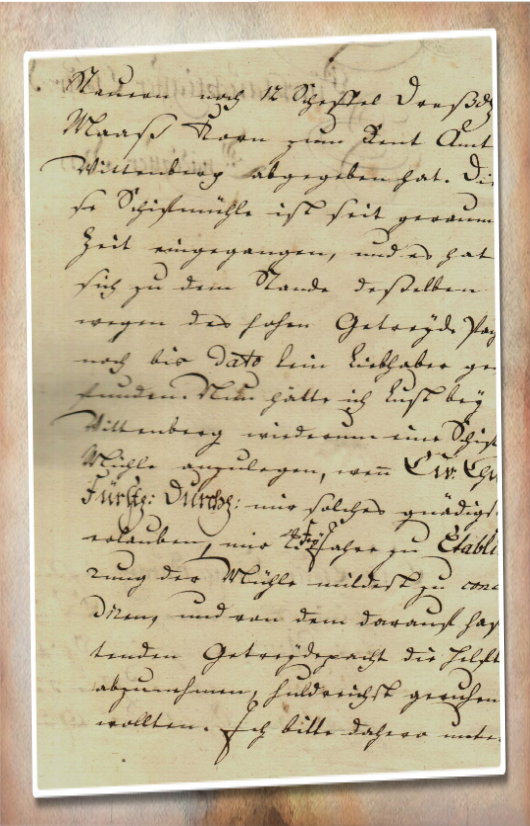 Steuern noch 12 Scheffel Dreßd
Maaß Korn zum Rent Amt
Wittenberg abgegeben hat. Die
se Schifmühle ist seit geraum
Zeit eingegangen, und es hat
sich zu dem Stande deßelben
wegen des hohen Getreyde Pac
noch bis dato kein Liebhaber ge
funden. Nun hätte ich Lust bey
Wittenberg wiederum eine Schif
Mühle anzulegen, wenn Ew. Chu
Fürstl: Durchl: mir solches gnädigs
erlauben, mir 2. Frey Jahre zu Etabli
rung der Mühle mildest zu conc
diren, und von dem darauf haf
tenden Getreydepacht die Helft
abzunehmen, huldreichst geruhen
wollten. Ich bitte dahero unte